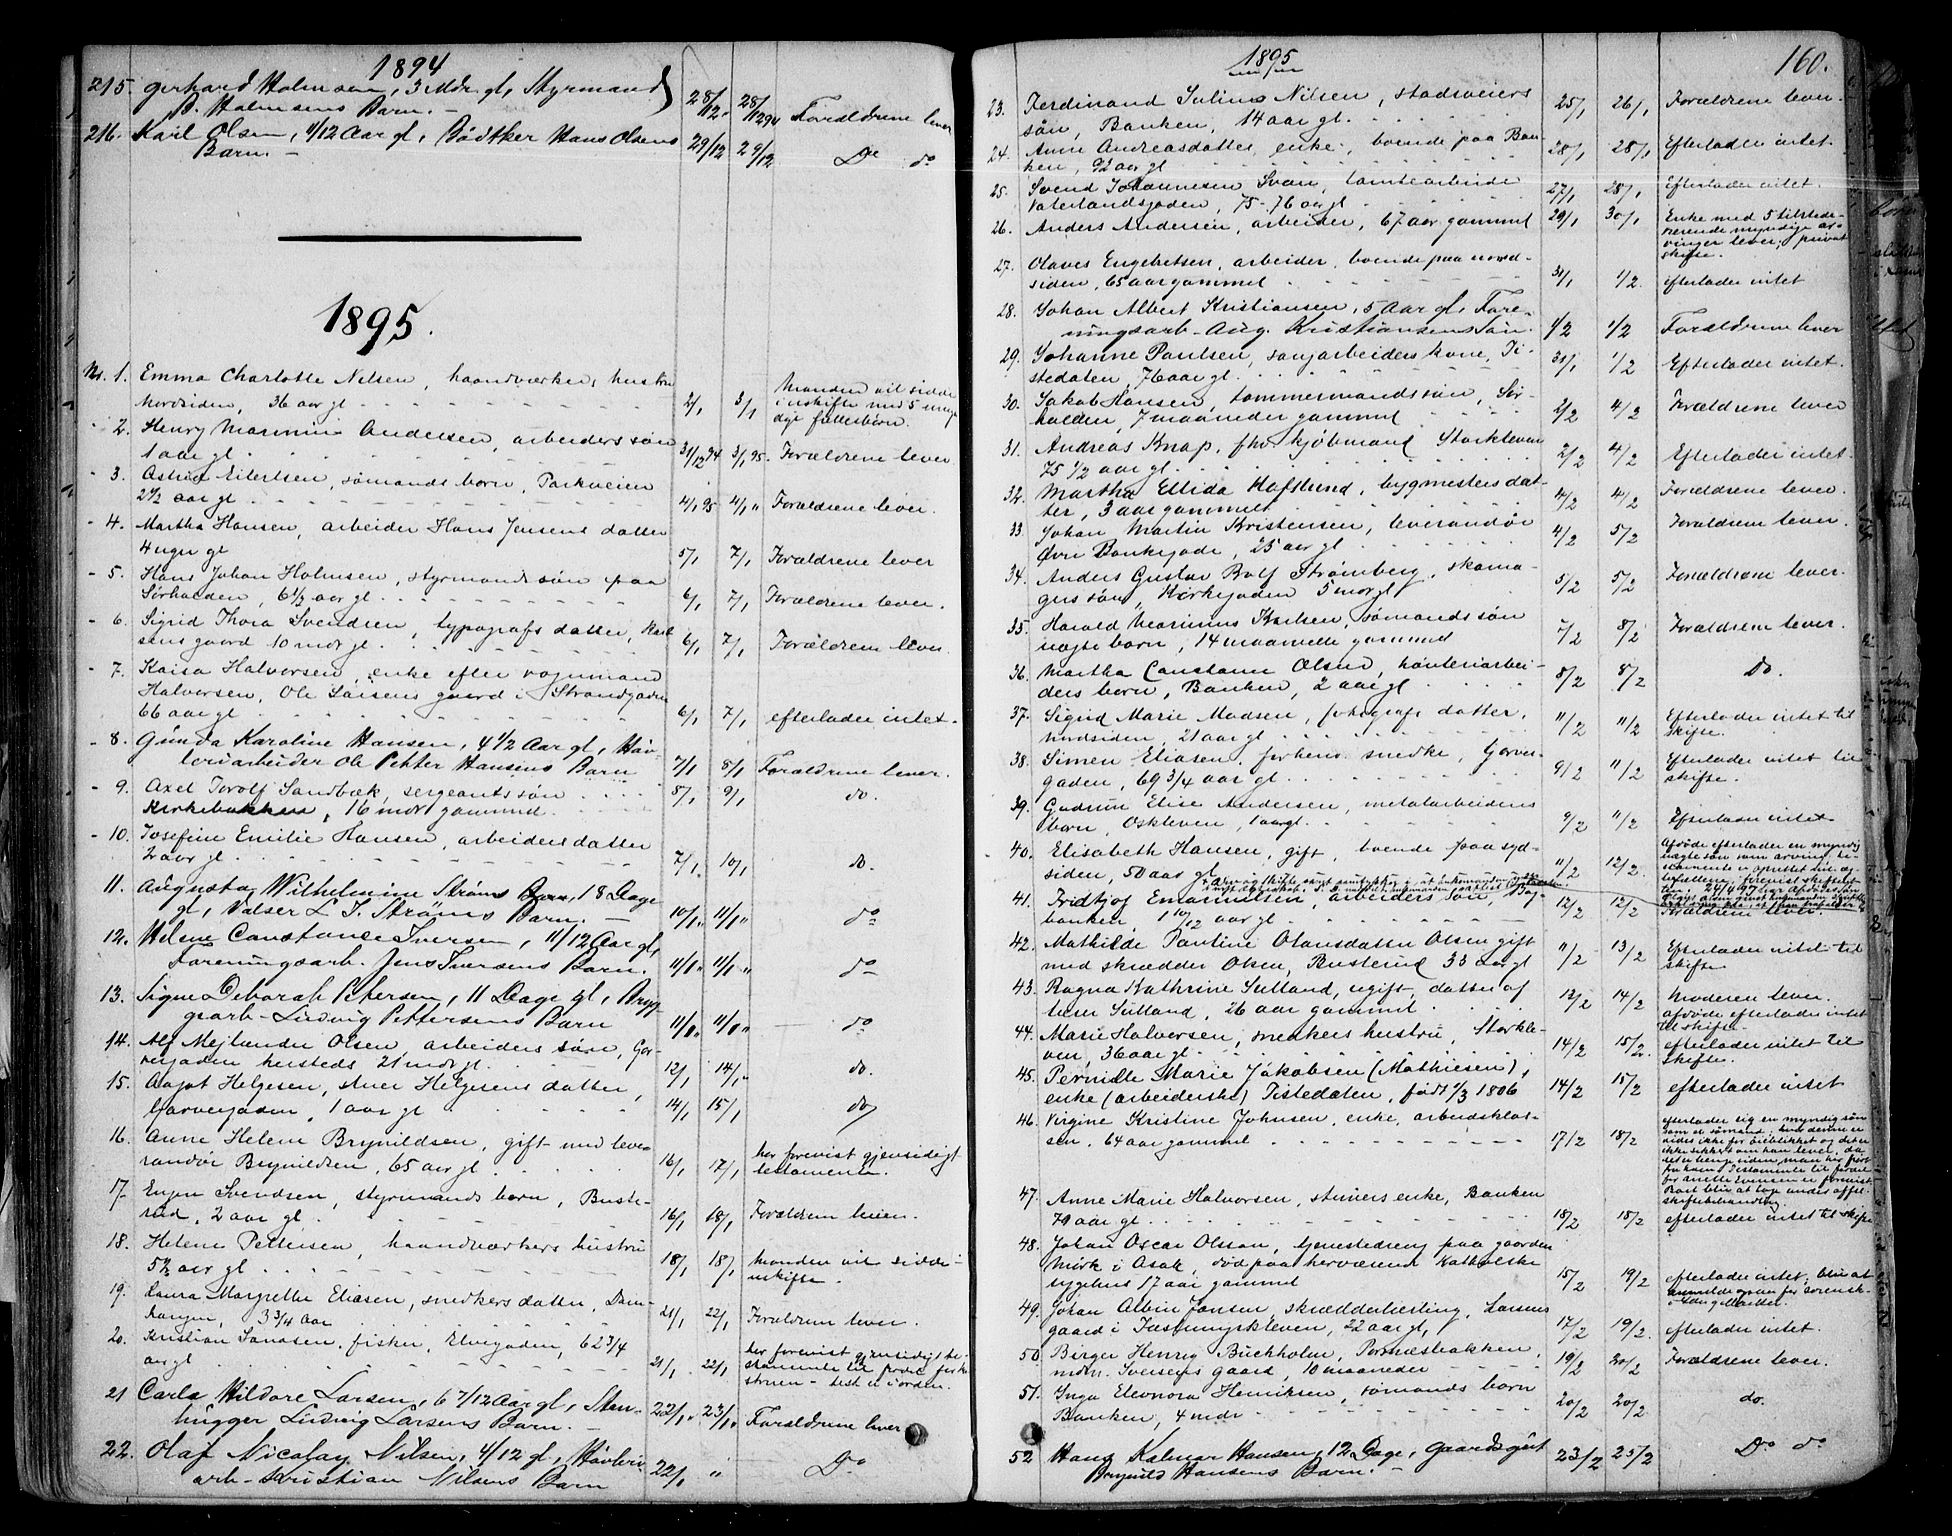 1894
215. Gerhard Holmsen, 3 Mdr. gl, Styrmand
B. Holmsens Barn. - 28/12 " 28/12 94 Forældrene lever
216. Karl Olsen, 4/12 Aar gl, Bødtker Hans Olsens
Barn. - 29/12 29/12 Do do
1895.
Nr. 1. Emma Charlotte Nilsen, haandværker, hustru
Nordsiden, 36 aar gl 2/1 3/1 Manden vil sidde
i uskifte med 5 umyn
dige fællesbørn.
- 2. Henry Marinius Andersen, arbeiders søn
1 aar gl 31/12 94 3/1 95. Forældrene lever.
- 3. Astrid Eilertsen, sømands barn, Parkveien
2 1/2 aar gl 4/1 95 4/1 " Forældrene lever.
- 4. Martha Hansen, arbeider Hans Jensens datter
4 ugr gl 5/1 7/1 Forældrene lever
- 5. Hans Johan Holmsen, styrmands søn paa
Sørhalden, 6 1/2 aar gl. 6/1 7/1 Forældrene lever.
- 6. Sigrid Thora Svendsen, typografs datter, Karl
sens gaard 10 mdr gl. 6/1 7/1 Forældrene lever.
- 7. Kaisa Halvorsen, enke efter vognmand
Halvorsen, Ole Larsens gaard i Strandgaden
66 aar gl 6/1 7/1 efterlader intet.
- 8. Gunda Karoline Hansen, 4 1/2 Aar gl, Høv-
leriarbeider Ole Petter Hansens Barn 7/1 8/1 Forældrene lever.
- 9. Axel Torolf Sandbæk, sergeants søn
Kirkebakken, 16 mdr gammel. 8/1 9/1 do.
- 10. Josefine Emilie Hansen, arbeiders datter
2 aar gl. 7/1 10/1 do.
11. Augusta Wilhelmine Strøms Barn, 18 Dage
gl, Valser L. J. Strøms Barn. - 10/1 " 11/1 " do
12. Helene Constance Iversen, 11/12 Aar gl,
Foreningsarb. Jens Iversens Barn. 11/1 " 11/1 " do
13. Signe Deborah Petersen, 11 Dage gl, Brygg-
garb- Ludvig Pettersens Barn 11/1 " 11/1 " do
14. Alf Mejlænder Olsen, arbeiders søn, Gar-
vergaden hersteds 21 mdr gl. 12/1 14/1 do.
15. Aagot Helgesen, stuer Helgesens datter,
Garvergaden, 1 aar gl 14/1 15/1 do
16. Anne Helene Brynildsen, gift med leve-
randør Brynildsen, 65 aar gl. 16/1 17/1 har forevist gjensidigt
testamente.
17. Svendsen, styrmands barn, Buste-
rud, 2 aar gl. 16/1 18/1 Forældrene lever.
18. Helene Pettersen, haandværkers hustru
aar gl 18/1 18/1 manden vil sidde i
uskifte.
19. Laura Margrethe Eliasen, snedkers datter, Dam-
3 3/4 aar 21/1 22/1 Forældrene lever.
20. Kristian fisker, Elvegaden, 62 3/4
aar gl 21/1 22/1 har forevist gjensidigt te-
stamente
21 Carla Hildore Larsen, 6 7/12 Aar gl, Sten-
hugger Ludvig Larsens Barn. - 22/1 " 23/1 " Forældrene lever
22. Olaf Nicolay Nilsen, 4/12 gl, Høvleri
arb- Kristian Nilsens Barn 22/1 " Do
1895 160.
23. Ferdinand Julius Nilsen, stadsveiers
søn, Banken, 14 aar gl. 25/1 26/1 Forældrene lever.
24. Anne Andreasdatter, enke, boende paa Ban-
ken, 92 aar gl 28/1 28/1 Efterlader intet.
25. Svend Johannesen Svan, tomtearbeider
Vaterlandsgaden, 75-76 aar gl 27/1 28/1 Efterlader intet.
26. Anders Andersen, arbeider, 67 aar gammel 29/1 30/1 Enke med 5 tilstede-
værende myndige ar-
vinger lever; privat
skifte.
27. Olaves Engebretsen, arbeider, boende paa nord-
siden, 65 aar gammel 31/1 1/2. efterlader intet
28. Johan Albert Kristiansen, 5 Aar gl, Fore-
ningsarb- Aug. Kristiansens Søn. 1/2 1/2 Forældrene lever
29. Johanne Paulsen, sagarbeiders kone, Ti-
stedalen, 76 aar gl. 31/1 1/2 Efterlader intet.
30. Jakob Hansen, tømmermands søn, Sør-
halden, 7 maaneder gammel 2/2 4/2 Forældrene lever
31. Andreas Knap, fhv. kjøbmand Storkleven
75 1/2 aar gl. 2/2 4/2 Efterlader intet.
32. Martha Ellida Hafslund, bygmesters dat-
ter, 3 aar gammel 4/2 4/2 Forældrene lever.
33. Johan Martin Kristensen, leverandør
Øvre Bankegade, 25 aar gl. 4/2 5/2 Forældrene lever.
34. Anders Gustav Rolf Strømberg, skoma-
gers søn, Kirkegaden 5 mdr gl 5/2 5/2 Forældrene lever.
35. Harald Marinius Karlsen, sømands søn
uægte barn, 14 maaneder gammel 7/2 8/2 Forældrene lever.
36. Martha Constance Olsen, høvleriarbei-
ders barn, Banken, 2 aar gl 8/2 8/2 Do.
37. Sigrid Marie Madsen, fotografs datter,
nordsiden, 21 aar gl 11/2 11/2 Efterlader intet til
skifte.
38. Simen Eliasen, forhenv. snedker, Garver-
gaden, 69 3/4 aar gl. 9/2 11/2 Efterlader intet til
skifte.
39. Gudrun Elise Andersen, metalarbeiders
barn, Oskleven, 1 aar gl. 9/2 11/2 Efterlader intet
40. Elisabeth Hansen, gift, boende paa syd-
siden, 50 aar gl 11/2 12/2. Afdøde efterlader en myndig
uægte søn som arving
41. Fridtjof Emanuelsen, arbeiders søn,
banken, 1 10/12 aar gl 12/2 12/2 Forældrene lever
42. Mathilde Pauline Olausdatter Olsen gift
med skrædder Olsen, Busterud 33 aar gl 11/2 13/2 Efterlader intet til
skifte.
43. Ragna Kathrine Sulland, ugift, datter af
Sulland, 26 aar gammel 12/2 14/2 Moderen lever.
afdøde efterlader intet
til skifte.
44. Marie Halvorsen, snedkers hustru, Storkle-
ven, 36 aar gl. 14/2 15/2. efterlader intet til
skifte.
45. Pernille Marie Jakobsen (Mathiesen),
enke (arbeiderske) Tistedalen, født 1/3 1806 14/2 15/2 efterlader intet
46. Virgine Kristine Johnsen, enke, arbeidsklas-
sen, 64 aar gammel 17/2 18/2 efterlader sig en myndig søn
som er sømand
47. Anne Marie Halvorsen, stuers enke, Banken
70 aar gl. 18/2 18/2 efterlader intet til skifte
48. Johan Oscar Olsson, tjenestedreng paa gaarden
Mørk i Asak, død paa herværende Katholske
sygehus 17 aar gammel 15/2 19/2 efterlader intet;
49. Johan Albin Jansen, skrædderlærling, Larsens
gaard i 22 aar gl, 17/2 19/2 efterlader intet.
50. Birger Henrig Buchholm, Pornæsbakken,
Iversens gaard, 10 maaneder 19/2 20/2 Forældrene lever.
51. Inga Eleonora Henriksen, sømands barn
Banken, 4 mdr 20/2 20/2 do.
52 Hans Kalmar Hansen, 12 Dage, Gaardsgut
Brynild Hansens Barn. - 23/2 25/2 Do do